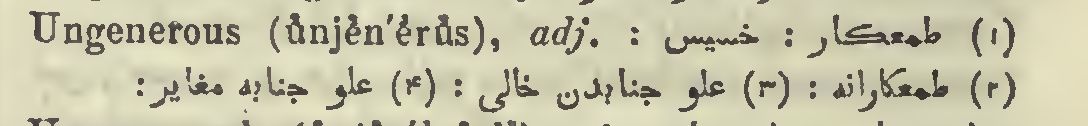 Ungenerous (ŭnjĕn′ĕrŭs), adj. : (۱) طمعکار : خسیس
(۲) طمعکارانه : (۳) علو جنابدن خالی : (۴) علو جنابه مغایر :